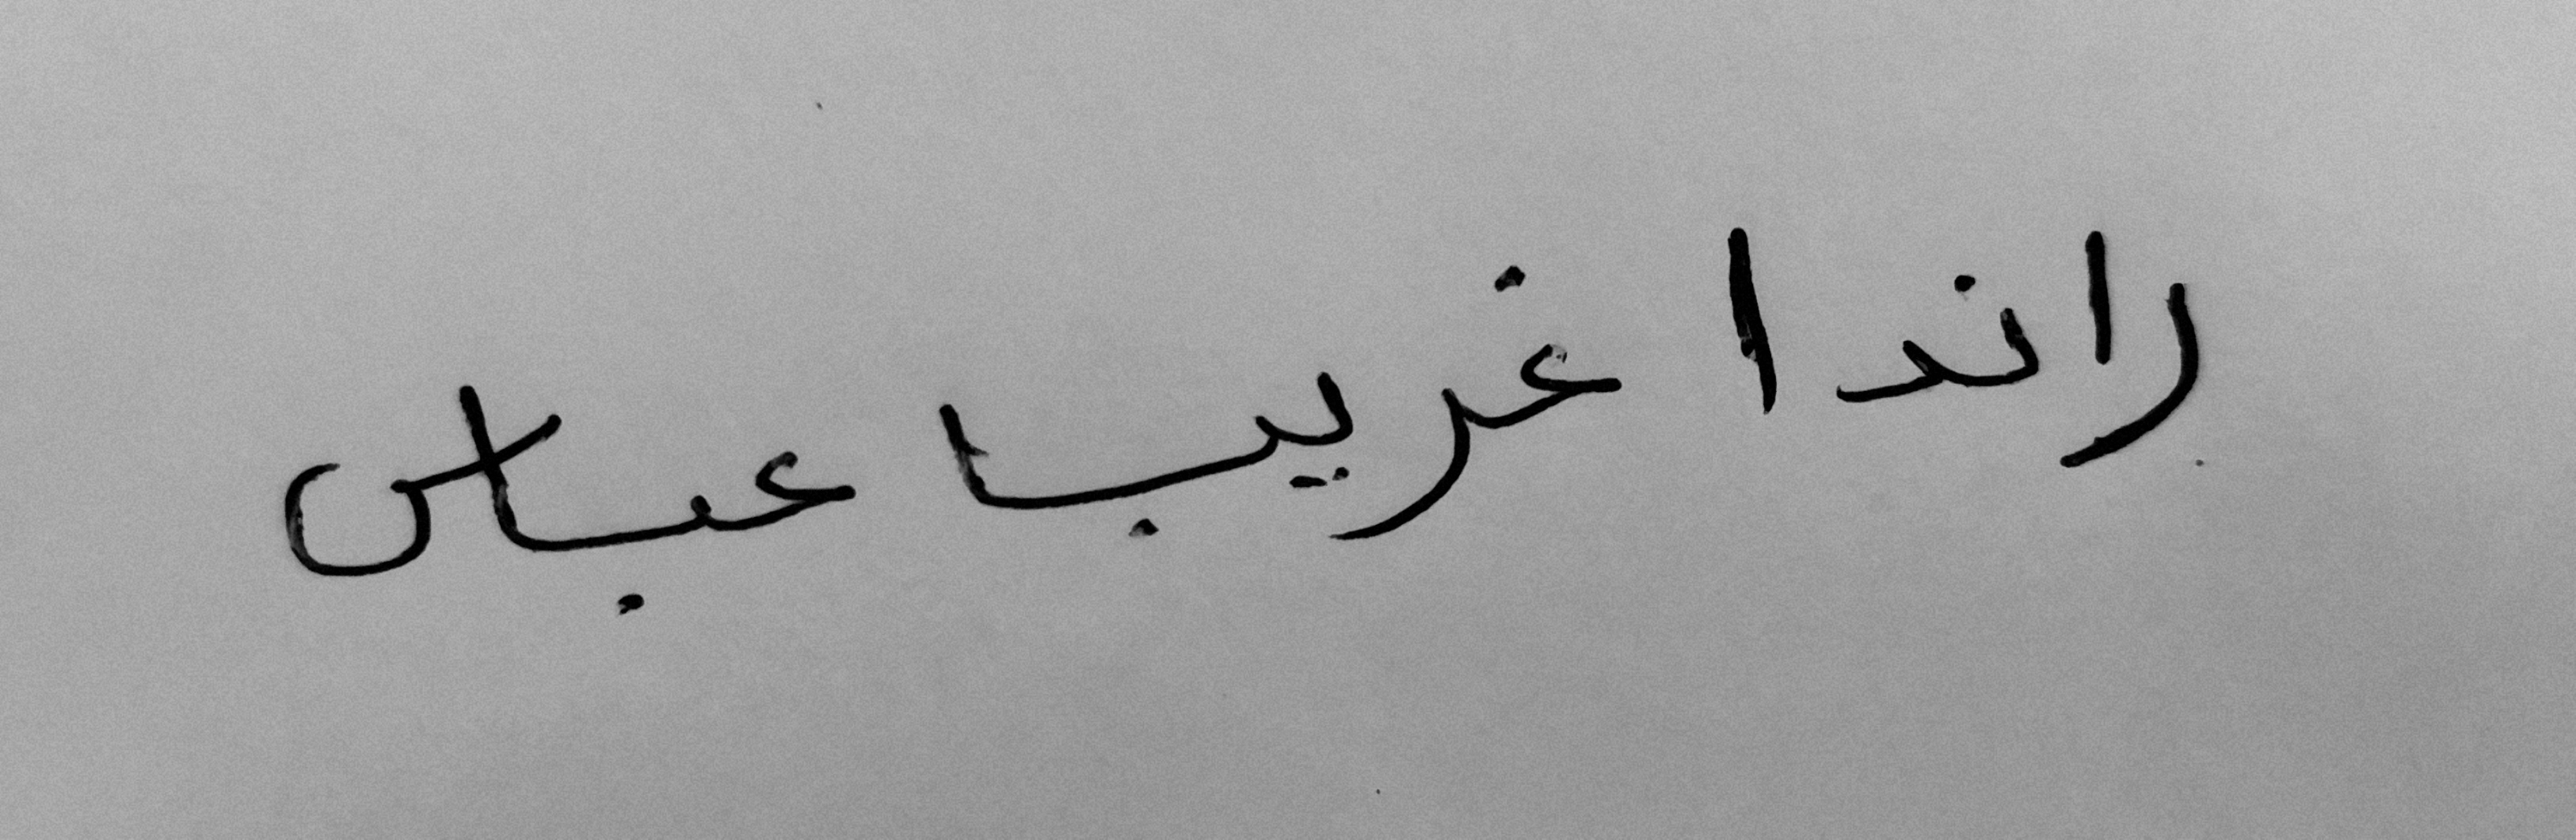 راندا غريب عباس